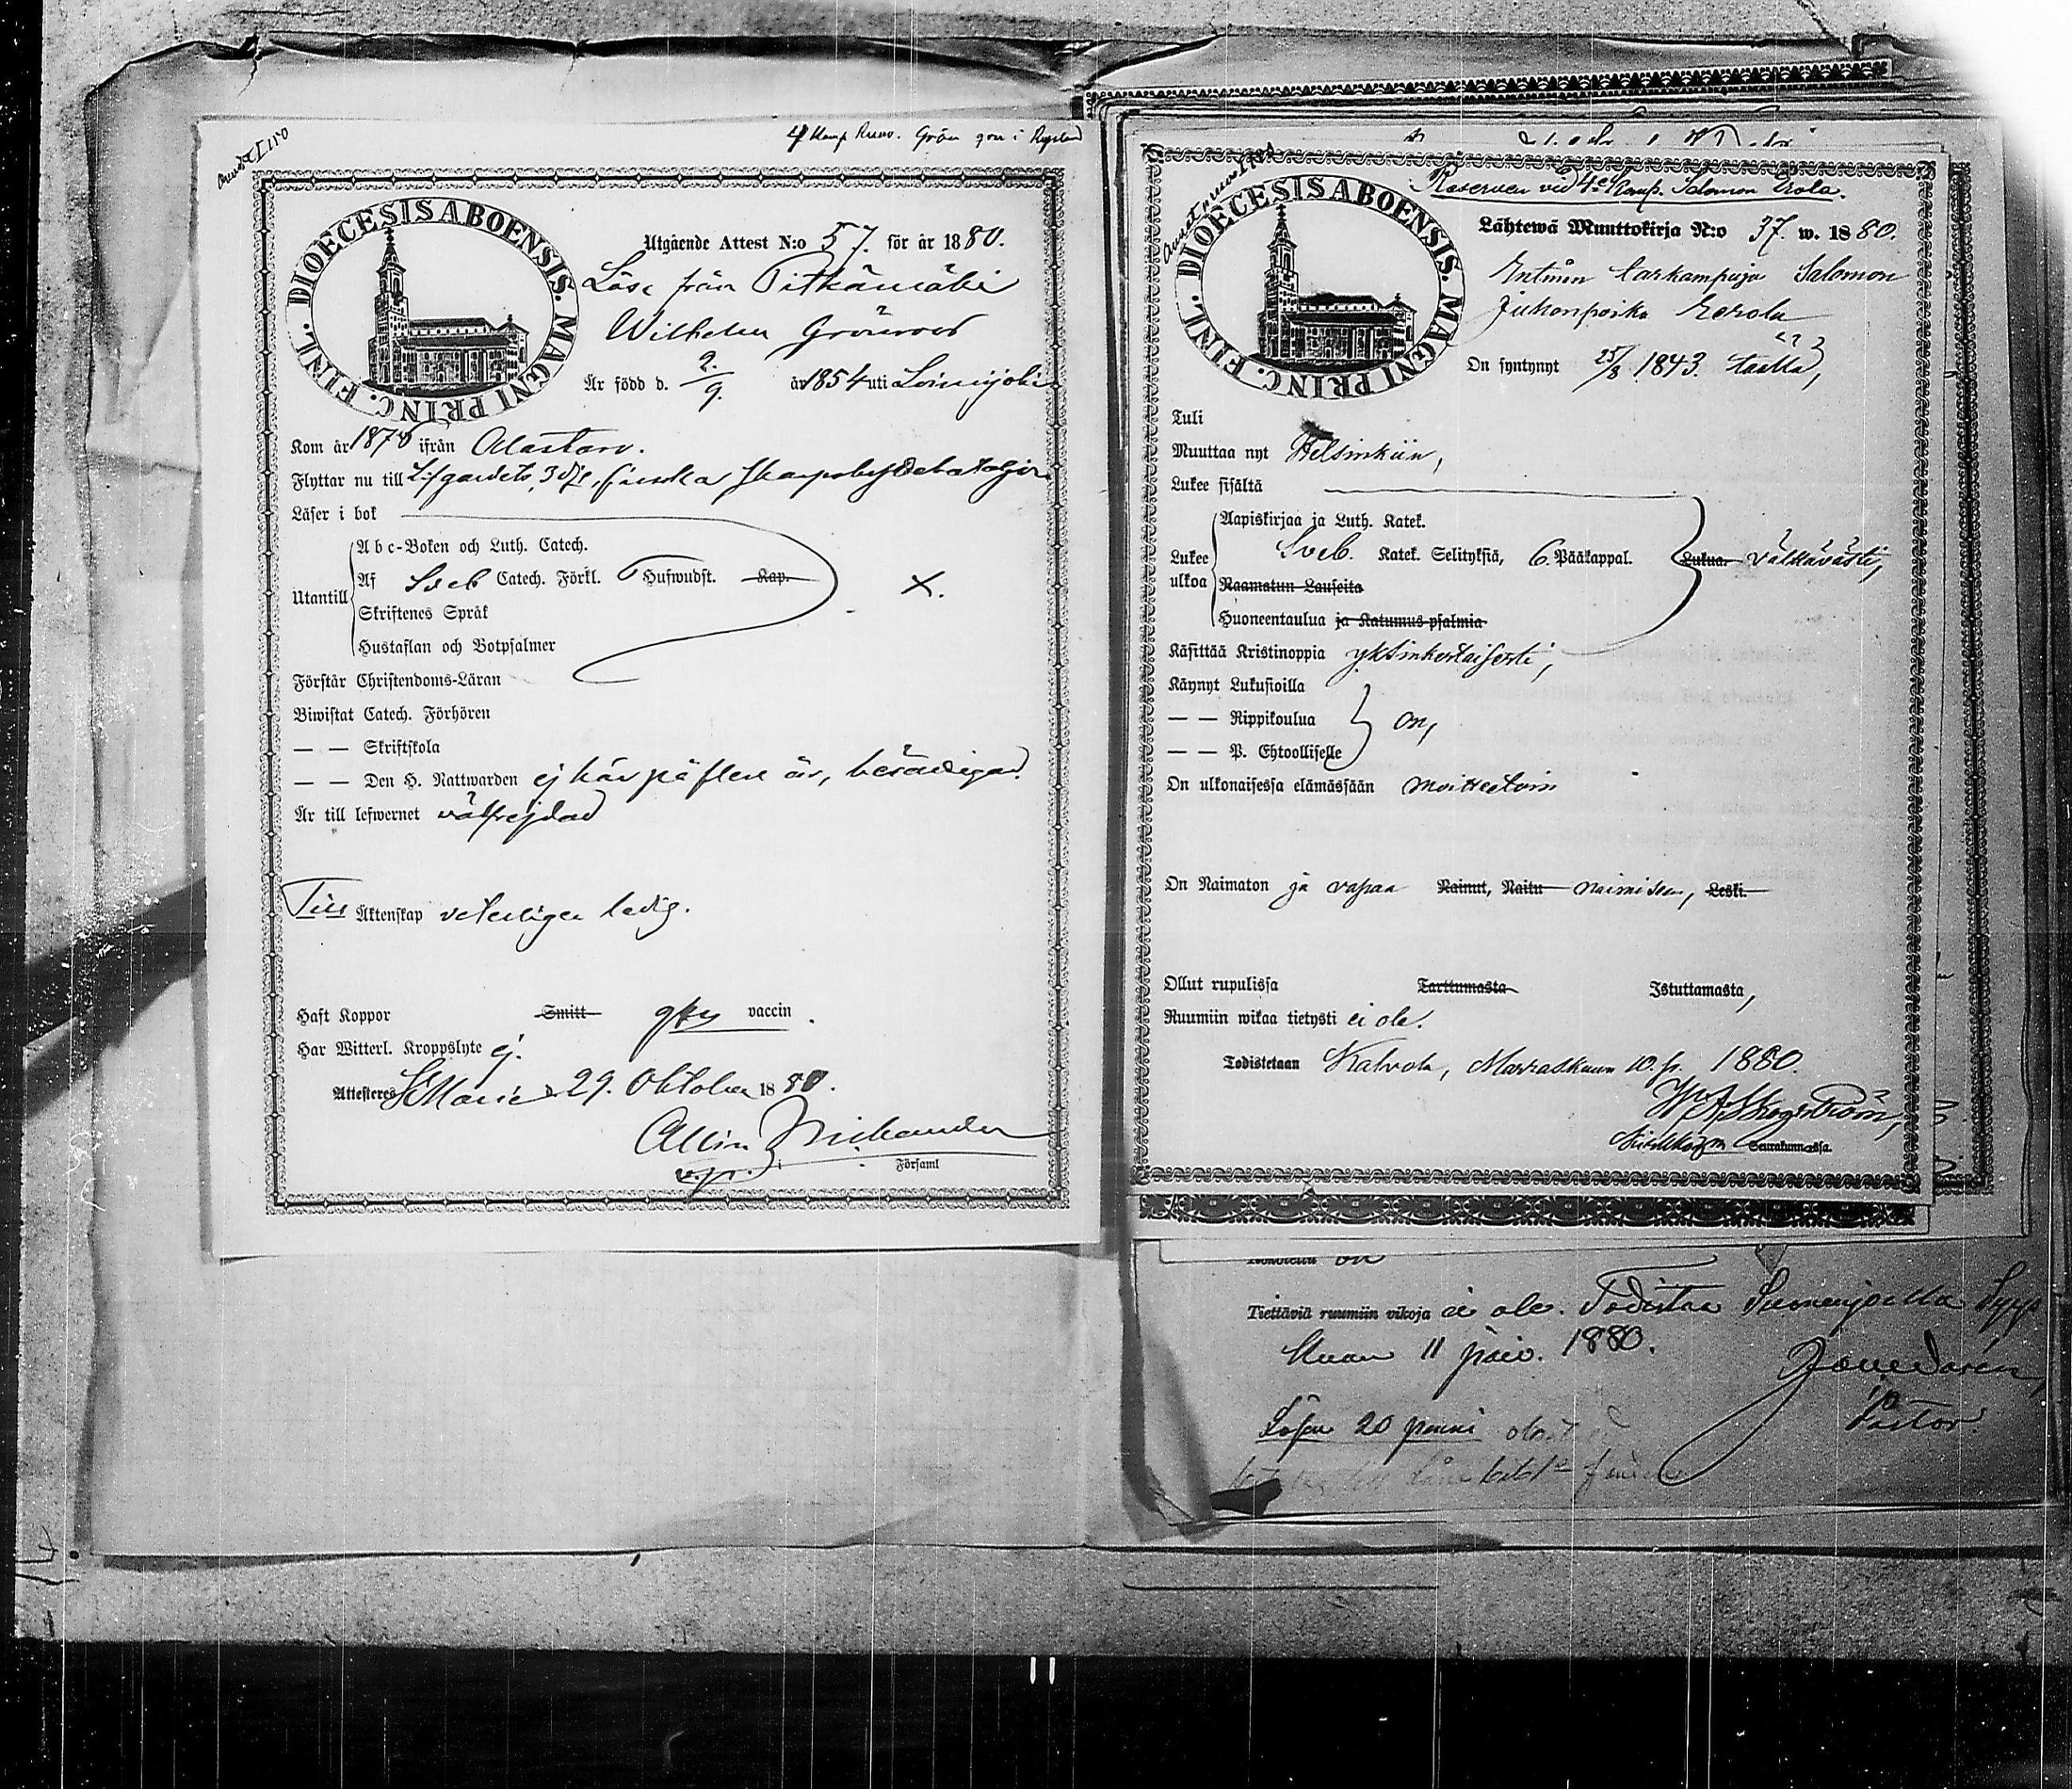 4 Komp Reserv. Grön
DIOECESIS ABOENSIS. MAGNI PRINC. FINL.
Utgående Attest N:o 57. för år 1880.
Löse från Pitkämäki
Wilhelm Grönroos
Är född d. 2/9. år 1854 uti Loimijoki
Kom år 1878 ifrån Alastaro.
Flyttar nu till Lifgardets 3dje finska Skarpskyttebataljon
Läser i bok
Utantill
A b c-Boken och Luth. Catech.
Af Sveb Catech. Förkl. 6 Hufwudst. Kap. X.
Skriftenes Språk
Hustaflan och Botpsalmer
Förstår Christendoms-Läran
Biwistat Catech. Förhören
— — Skriftskola
— — Den H. Nattwarden ej här på flere år, berättigad.
Är till lefwernet välfrejdad
Till Äktenskap veterligen ledig.
Haft Koppor Smitt vaccin.
Har Witterl. Kroppslyte ej.
Attesteres S:t Marie d. 29. Oktober 1880.
Albin Nichander
v. p. i Församl
Reserven vid 4de Komp. Salomon Erola.
DIOECESIS ABOENSIS. MAGNI PRINC. FINL.
Lähtewä Muuttokirja N:o 37. w. 1880.
Entinen tarkampuja Salomon
Juhonpoika Eerola
On syntynyt 25/8 1843. täällä,
Tuli
Muuttaa nyt Helsinkiin,
Lukee sisältä
Lukee ulkoa
Aapiskirjaa ja Luth. Katek.
Sveb. Katek. Selityksiä, 6 Pääkappal. Lukua. välttävästi,
Raamatun Lauseita
Huoneentaulua ja Katumus psalmia
Käsittää Kristinoppia yksinkertaisesti,
Käynyt Lukusioilla
— — Rippikoulua on,
— — P. Ehtoollisella
On ulkonaisessa elämässään moitteetoin
On Naimaton ja vapaa Nainut, Naitu naimiseen, Leski.
Ollut rupulissa Tarttumasta Istuttamasta,
Ruumiin wikaa tietysti ei ole.
Todistetaan Kalvola, Marraskuun 10. p. 1880.
Seurakunnassa.
Tiettäviä ruumiin vikoja ei ole. Todistaa
kuun 11 päiv. 1880.
Pastor
Lösen 20 penni